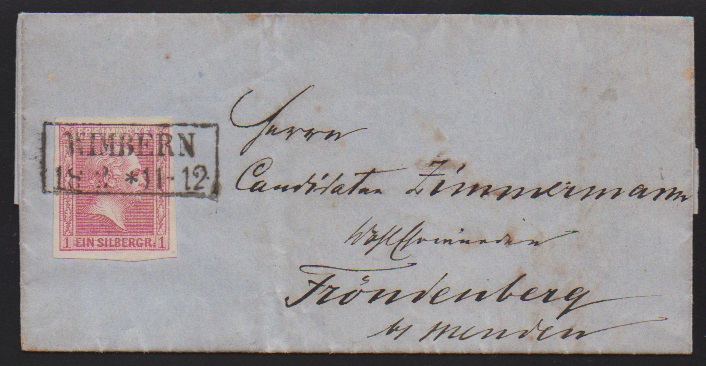 WIMBERN
18 2 *11-12
1 EIN SILBERGR. 1
Herrn
Candidaten Zimmermann
Wohlehrwürden
Fröndenberg
bs Menden